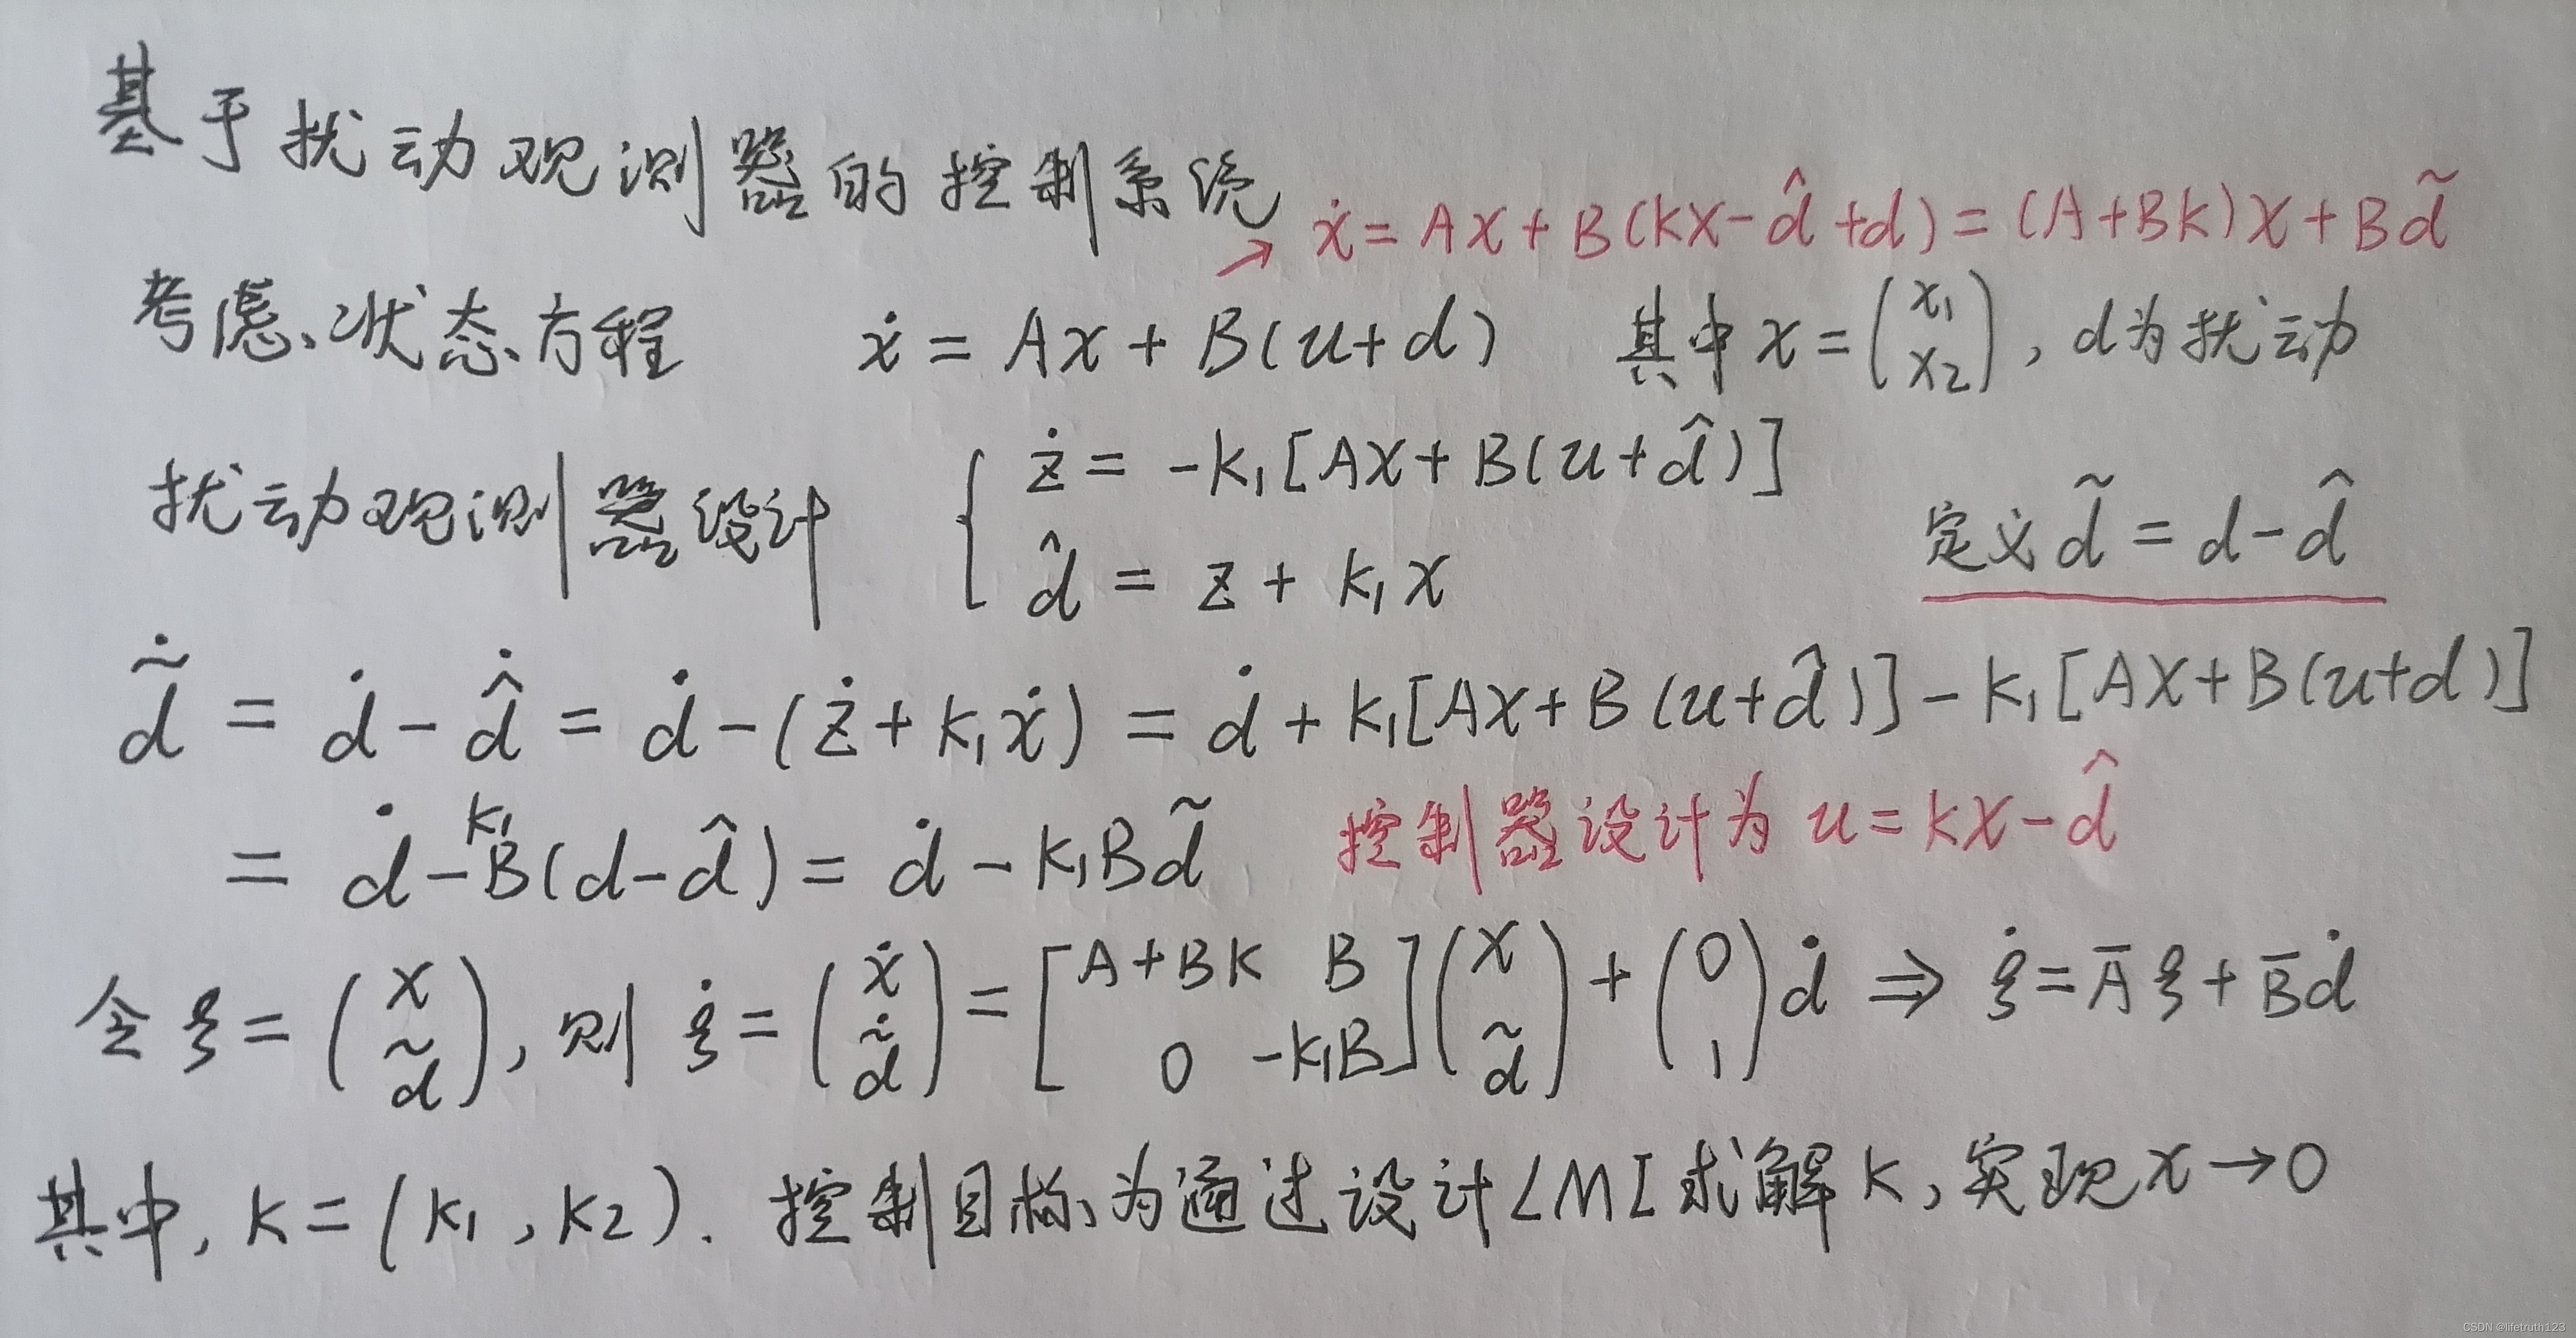 基于扰动观测器的控制系统
ẋ = Ax + B(kx - d̂ + d) = (A + Bk)x + Bd̃
考虑状态方程 ẋ = Ax + B(u + d) 其中 x = (x₁ x₂), d为扰动
扰动观测器设计 { ż = -k₁[Ax + B(u + d̂)]
d̂ = z + k₁x
定义 d̃ = d - d̂
d̃̇ = ḋ - d̂̇ = ḋ - (ż + k₁ẋ) = ḋ + k₁[Ax + B(u + d̂)] - k₁[Ax + B(u + d)]
= ḋ - k₁B(d - d̂) = ḋ - k₁Bd̃
控制器设计为 u = kx - d̂
令 ξ = (x d̃), 则 ξ̇ = (ẋ d̃̇) = [A+Bk B 0 -k₁B](x d̃) + (0 1)ḋ ⇒ ξ̇ = A̅ξ + B̅ḋ
其中, k = (k₁, k₂). 控制目标为通过设计LMI求解k, 实现x→0
CSDN @lifetruth123